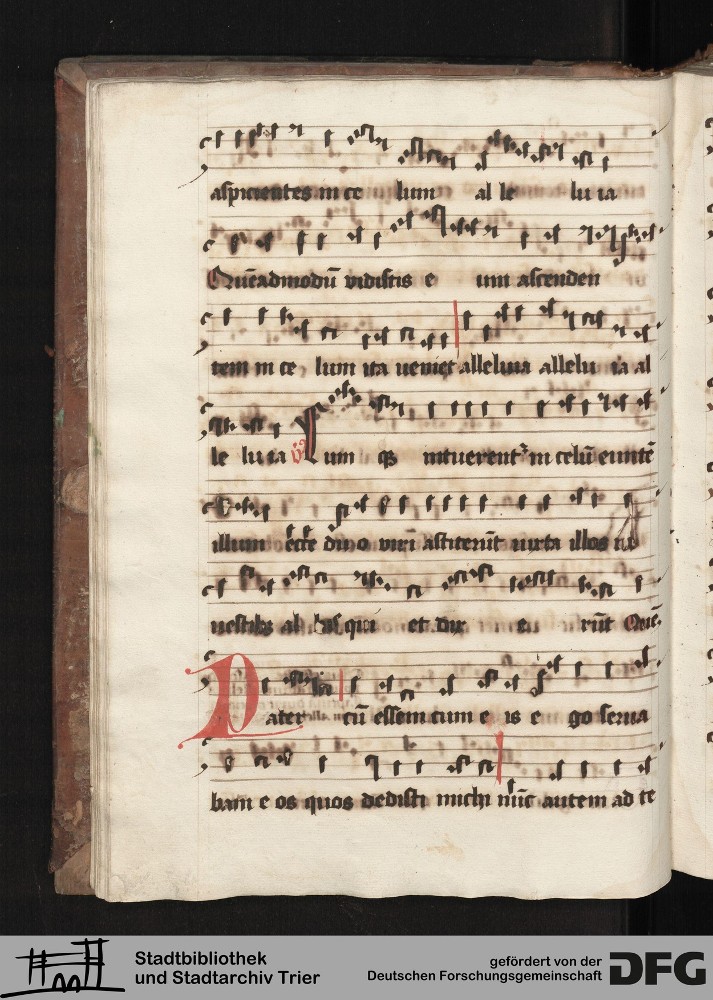 aspicientes in ce lum al le lu ia
Quēadmodū vidistis e um ascenden
tem in ce lum ita veniet alleluia allelu ia al
le lu ia Cum q3 intuerent᷑ in celū euntē
illum ecce duo viri astiterūt iuxta illos in
vestib3 al bis qui et dix e rūt Quē
Pater cū essem cum e is e go serua
bam e os quos dedisti michi nūc autem ad te
Stadtbibliothek
und Stadtarchiv Trier
gefördert von der
Deutschen Forschungsgemeinschaft
DFG